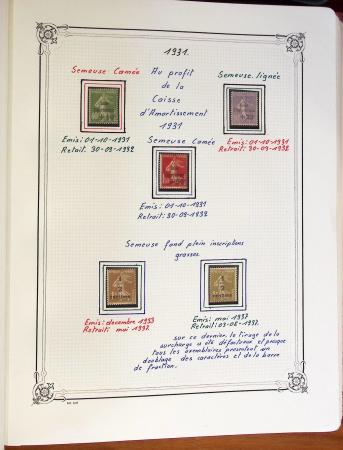 1931.
Semeuse Camée
Au profit
de la
Caisse
d'Amortissement
1931
Semeuse lignée
Emis: 01-10-1931
Retrait: 30-09-1932
Emis: 01-10-1931
Retrait: 30-09-1932
Semeuse Camée
Emis: 01-10-1931
Retrait: 30-09-1932
Semeuse fond plein inscriptions
grasses.
Emis: decembre 1933
Retrait: mai 1937.
Emis: mai 1937
Retrait: 03-06-1937.
sur ce dernier, le tirage de la
surcharge a été défectueux et presque
tous les exemplaires présentent un
doublage des caractères et de la barre
de fraction.